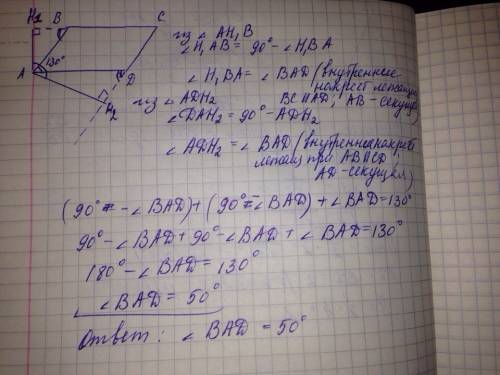 H₁ B C
A 130° D
H₂
из △ AH₁B
∠H₁AB = 90° - ∠H₁BA
∠H₁BA = ∠BAD (внутренние
накрест лежащие
BC ∥ AD, AB - секущая
из △ADH₂
∠DAH₂ = 90° - ADH₂
∠ADH₂ = ∠BAD (внутренние накрест
лежащ при AB ∥ CD
AD - секущей)
(90° - ∠BAD) + (90° - ∠BAD) + ∠BAD = 130°
90° - ∠BAD + 90° - ∠BAD + ∠BAD = 130°
180° - ∠BAD = 130°
∠BAD = 50°
Ответ: ∠BAD = 50°